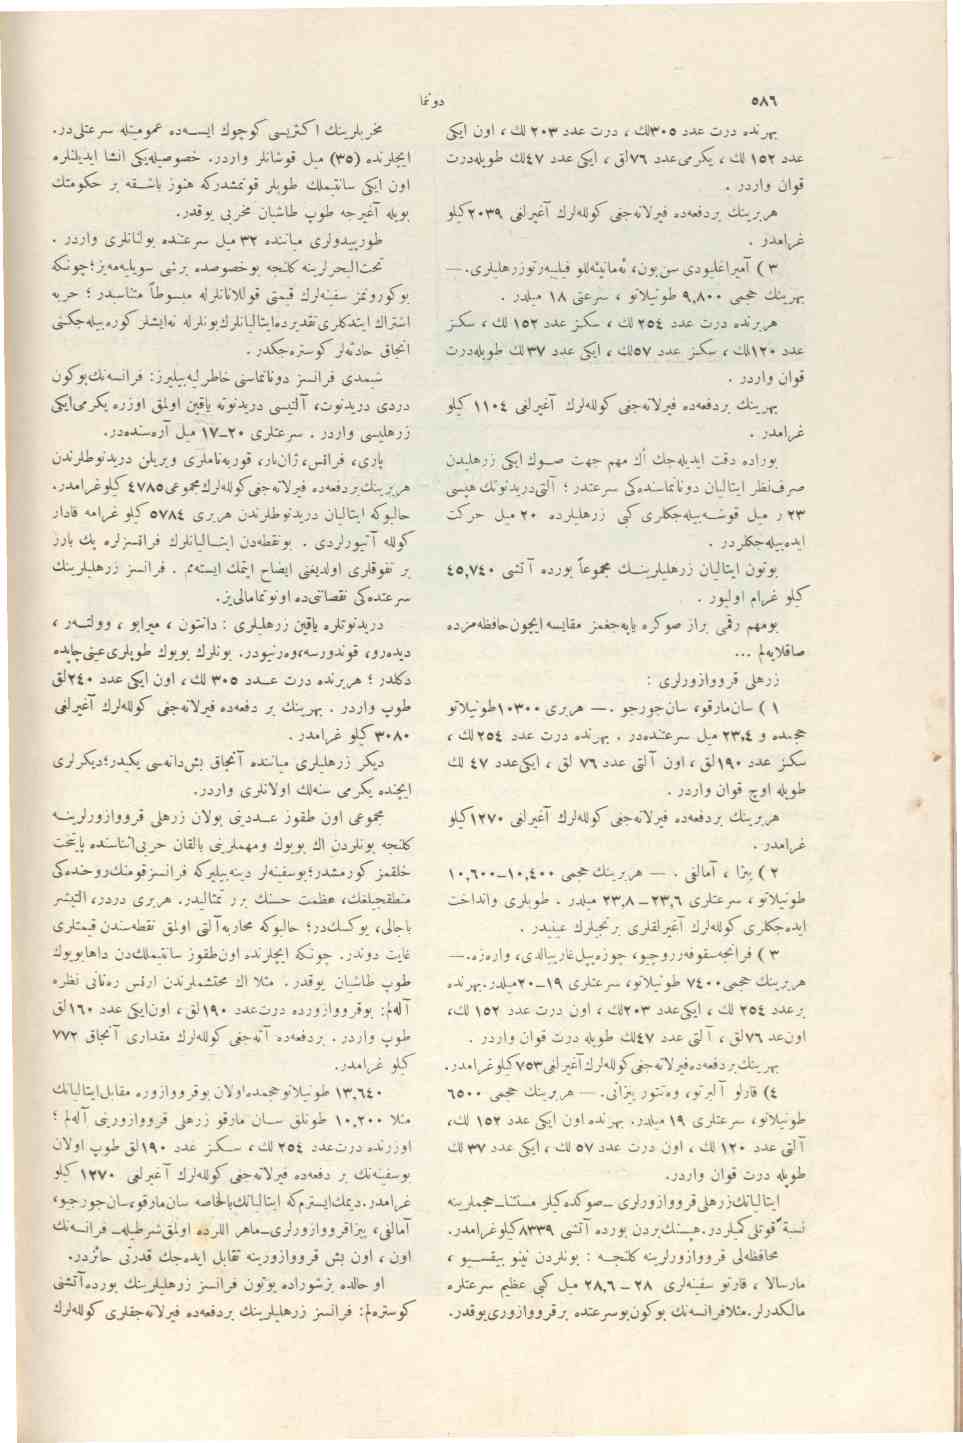 ٥٨٦
دوننما
بهرنده درت عدد ٣٠٥لك ، درت عدد ٢٠٣ لك ، اون ایكی
عدد ١٥٢ لك ، یكرمی عدد ٧٦لق ، ایكی عدد ٤٧لك طوپله درت
قوان واردر .
هر برینك بر دفعه ده فیرلاته جغی كولله لرك آغیرلغی ٢٠٣٩كیلو
غرامدر .
٣ ) آمیراغلیودی سن بون، ئه مانیئه للو فیلیبه رتوزرهلیلری. —
بهرینك حجمی ٩,٨٠٠ طونیلاتو ، سرعتی ١٨ میلدر .
هر برنده درت عدد ٢٥٤ لك ، سكز عدد ١٥٢ لك ، سكز
عدد ١٢٠لك ، سكز عدد ٥٧لك ، ایكی عدد ٣٧ لك طوپله درت
قوان واردر .
بهرینك بر دفعه ده فیرلاته جغی كولله لرك آغیرلغی ١١٠٤ كیلو
غرامدر .
بوراده دقت ایدیله جك اك مهم جهت صوك ایكی زرهلیدن
صرف نظر ایتالیان دونانماسنده كی سرعتدر ؛ آلتی دریدنوتك هپسی
٢٣ ر میل قوشه بیله جكلری كبی زرهلیلرده ٢٠ میل حركت
ایده بیله جكلردر .
بوتون ایتالیان زرهلیلرینك مجموعاً بورده آتشی ٤٥,٧٤٠
كیلو غرام اولیور .
بومهم رقمی براز صوكره یاپه جغمز مقایسه ایچون حافظه مزده
صاقلایه لم ...
زرهلی قرووازورلری :
١ ) سان مارقو، سان جورجو . — هر بری ١٠٣٠٠طونیلاتو
حجمده و ٢٣,٤ میل سرعتده در . بهرنده درت عدد ٢٥٤ لك ،
سكز عدد ١٩٠لق ، اون آلتی عدد ٧٦ لق ، ایكی عدد ٤٧ لك
طوپله اوچ قوان واردر .
هر برینك بر دفعه ده فیرلاته جغی كولله لرك آغیرلغی ١٢٧٠ كیلو
غرامدر .
٢ ) پیزا ، آمالفی . — هر برینك حجمی ١٠,٤٠٠—١٠,٦٠٠
طونیلاتو ، سرعتلری ٢٣,٦ — ٢٣,٨ میلدر . طوپلری وانداخت
ایده جكلری كولله لرك آغیرلقلری برنجیلرك عینیدر .
٣ ) فرانچه سقوفه رروچیو، جوزه پپل غاریبالدی، واره زه. —
هر برینك حجمی ٧٤٠٠ طونیلاتو، سرعتلری ١٩—٢٠میلدر. بهرنده
بر عدد ٢٥٤ لك ، ایكی عدد ٢٠٣لك ، اون درت عدد ١٥٢ لك،
اون عد ٧٦لق ، آلتی عدد ٤٧لك طوپله درت قوان واردر .
بهرینك بر دفعه ده فیرلاته جغی كولله لرك آغیرلغی ٧٥٣كیلوغرامدر.
٤) قارلو آلبرتو، وه تتور پیزانی. — هر برینك حجمی ٦٥٠٠
طونیلاتو، سرعتلری ١٩ میلدر. بهرنده اون ایكی عدد ١٥٢ لك،
آلتی عدد ١٢٠ لك ، اون درت عدد ٥٧ لك ، ایكی عدد ٣٧ لك
طوپله درت قوان واردر.
ایتالیانك زرهلی قرووازورلری —صوكده كیلر مستثنا— حجملرینه
نسبةً قوتلی كمیلردر. هپسنك بردن بورده آتشی ٨٣٣٩كیلوغرامدر.
محافظه لی قرووازورلرینه كلنجه : بونلردن نینو بیقسیو ،
مارسالا ، قارتو سفینه لری ٢٨ — ٢٨,٦ میل كبی عظیم سرعتلره
مالكدرلر. مثلا فرانسه نك بوكون بو سرعتده بر قرووازوری یوقدر.
مخربلرینك اكثریسی كوچوك ایسه ده عمومیتله سرعتلی در.
ایچلرنده (٣٥) میل قوشانلر واردر. خصوصیله یكی انشا ایدیلنلره
اون ایكی سانتیملك طوپلر قونمشدركه هنوز باشقه بر حكومتك
بویله آغیرجه طوپ طاشیان مخربی یوقدر.
طورپیدولری میاننده ٣٢ میل سرعتنده بولنانلری واردر .
تحت البحرلرینه كلنجه بو خصوصده برشی سویلیه مه یز؛ چونكه
بو كورونمز سفینه لرك قیمتی قوللانانلرله مبسوطاً متناسبدر ؛ حربه
اشتراك ایتدكلری تقدیرده ایتالیانلرك بونلرله نه ایشلر كوره بیله جكنی
انجاق حادثه لر كوستره جكدر .
شیمدی فرانسز دونانماسنی خاطرلیه بیلیرز: فرانسه نك بوكون
دردی دریدنوت، آلتیسی دریدنوته یاقین اولمق اوزره یكرمی ایكی
زرهلیسی واردر . سرعتلری ١٧—٢٠ میل آره سنده در.
پاری، فرانس، ژان بار، قوربه ناملری ویریلن دریدنوطلرندن
هر برینك بر دفعه ده فیرلاته جغی كولله لرك مجموعی ٤٧٨٥ كیلو غرامدر.
حالبوكه ایتالیان دریدنوطلرندن هر بری ٥٧٨٤ كیلو غرامه قادار
كولله آتیورلردی . بو نقطه دن ایتالیانلرك فرانسزلره پك بارز
بر تفوقلری اولدیغنی ایضاح ایتمك ایسته مم . فرانسز زرهلیلرینك
سرعتده كی نقصانی ده اونوتمامالی یز.
دریدنوتلره یاقین زرهلیلری : دانتون ، میرابو ، وولتهر ،
دیده رو، قوندورسه، وه رنیودر. بونلرك بویوك طوپلری عینی چاپده
دكلدر ؛ هر برنده درت عدد ٣٠٥ لك ، اون ایكی عدد ٢٤٠لق
طوپ واردر . بهرینك بر دفعه ده فیرلاته جغی كولله لرك آغیرلغی
٣٠٨٠ كیلو غرامدر .
دیكر زرهلیلری میاننده آنجاق بش دانه سی یكیدر؛ دیكرلری
ایچنده یكرمی سنه لك اولانلری واردر.
مجموعی اون طقوز عددینی بولان زرهلی قرووازورلرینه
كلنجه بونلردن اك بویوك ومهملرینی بالقان حربی اثناسنده پایتخت
خلقمز كورمشدر؛ بو سفینه لر دینه بیلیر كه فرانسز قومنك روحنده كی
منطقجیلغك، عظمت حسنك برر تمثالیدر. هر بری دردر، التیشر
باجالی، یوكسكدر؛ حالبوكه محاربه آلتی اولمق نقطه سندن قیمتلری
غایت دوندر. چونكه ایچلرنده اون طقوز سانتیملكدن داها بویوك
طوپ طاشیان یوقدر. مثلا اك محتشملرندن ارنس ره نانی نظره
آله لم: بو قرووازورده درت عدد ١٩٠لق ، اون ایكی عدد ١٦٠لق
طوپ واردر . بر دفعه ده آته جغی كولله لرك مقداری آنجاق ٧٧٢
كیلو غرامدر.
١٣,٦٤٠ طونیلاتو حجمده اولان بو قرووازوره مقابل ایتالیانك
مثلا ١٠,٢٠٠ طونلق سان مارقو زرهلی قرووازورینی آله لم ؛
اوزرنده درت عدد ٢٥٤ لك ، سكز عدد ١٩٠لق طوپ اولان
بو سفینه نك بر دفعه ده فیرلاته جغی كولله لرك آغیرلغی ١٢٧٠ كیلو
غرامدر. دیمك ایسترم كه ایتالیانك بالخاصه سان مارقو، سان جورجیو،
آمالفی، پیزا قرووازورلری—ماهر اللرده اولمق شرطیله— فرانسه نك
اون ، اون بش قرووازورینه تقابل ایده جك قدرتی حائزدر.
او حالده بز شوراده بوتون فرانسز زرهلیلرینك بورده آتشنی
كوستره لم: فرانسز زرهلیلرینك بر دفعه ده فیرلاته جقلری كولله لرك